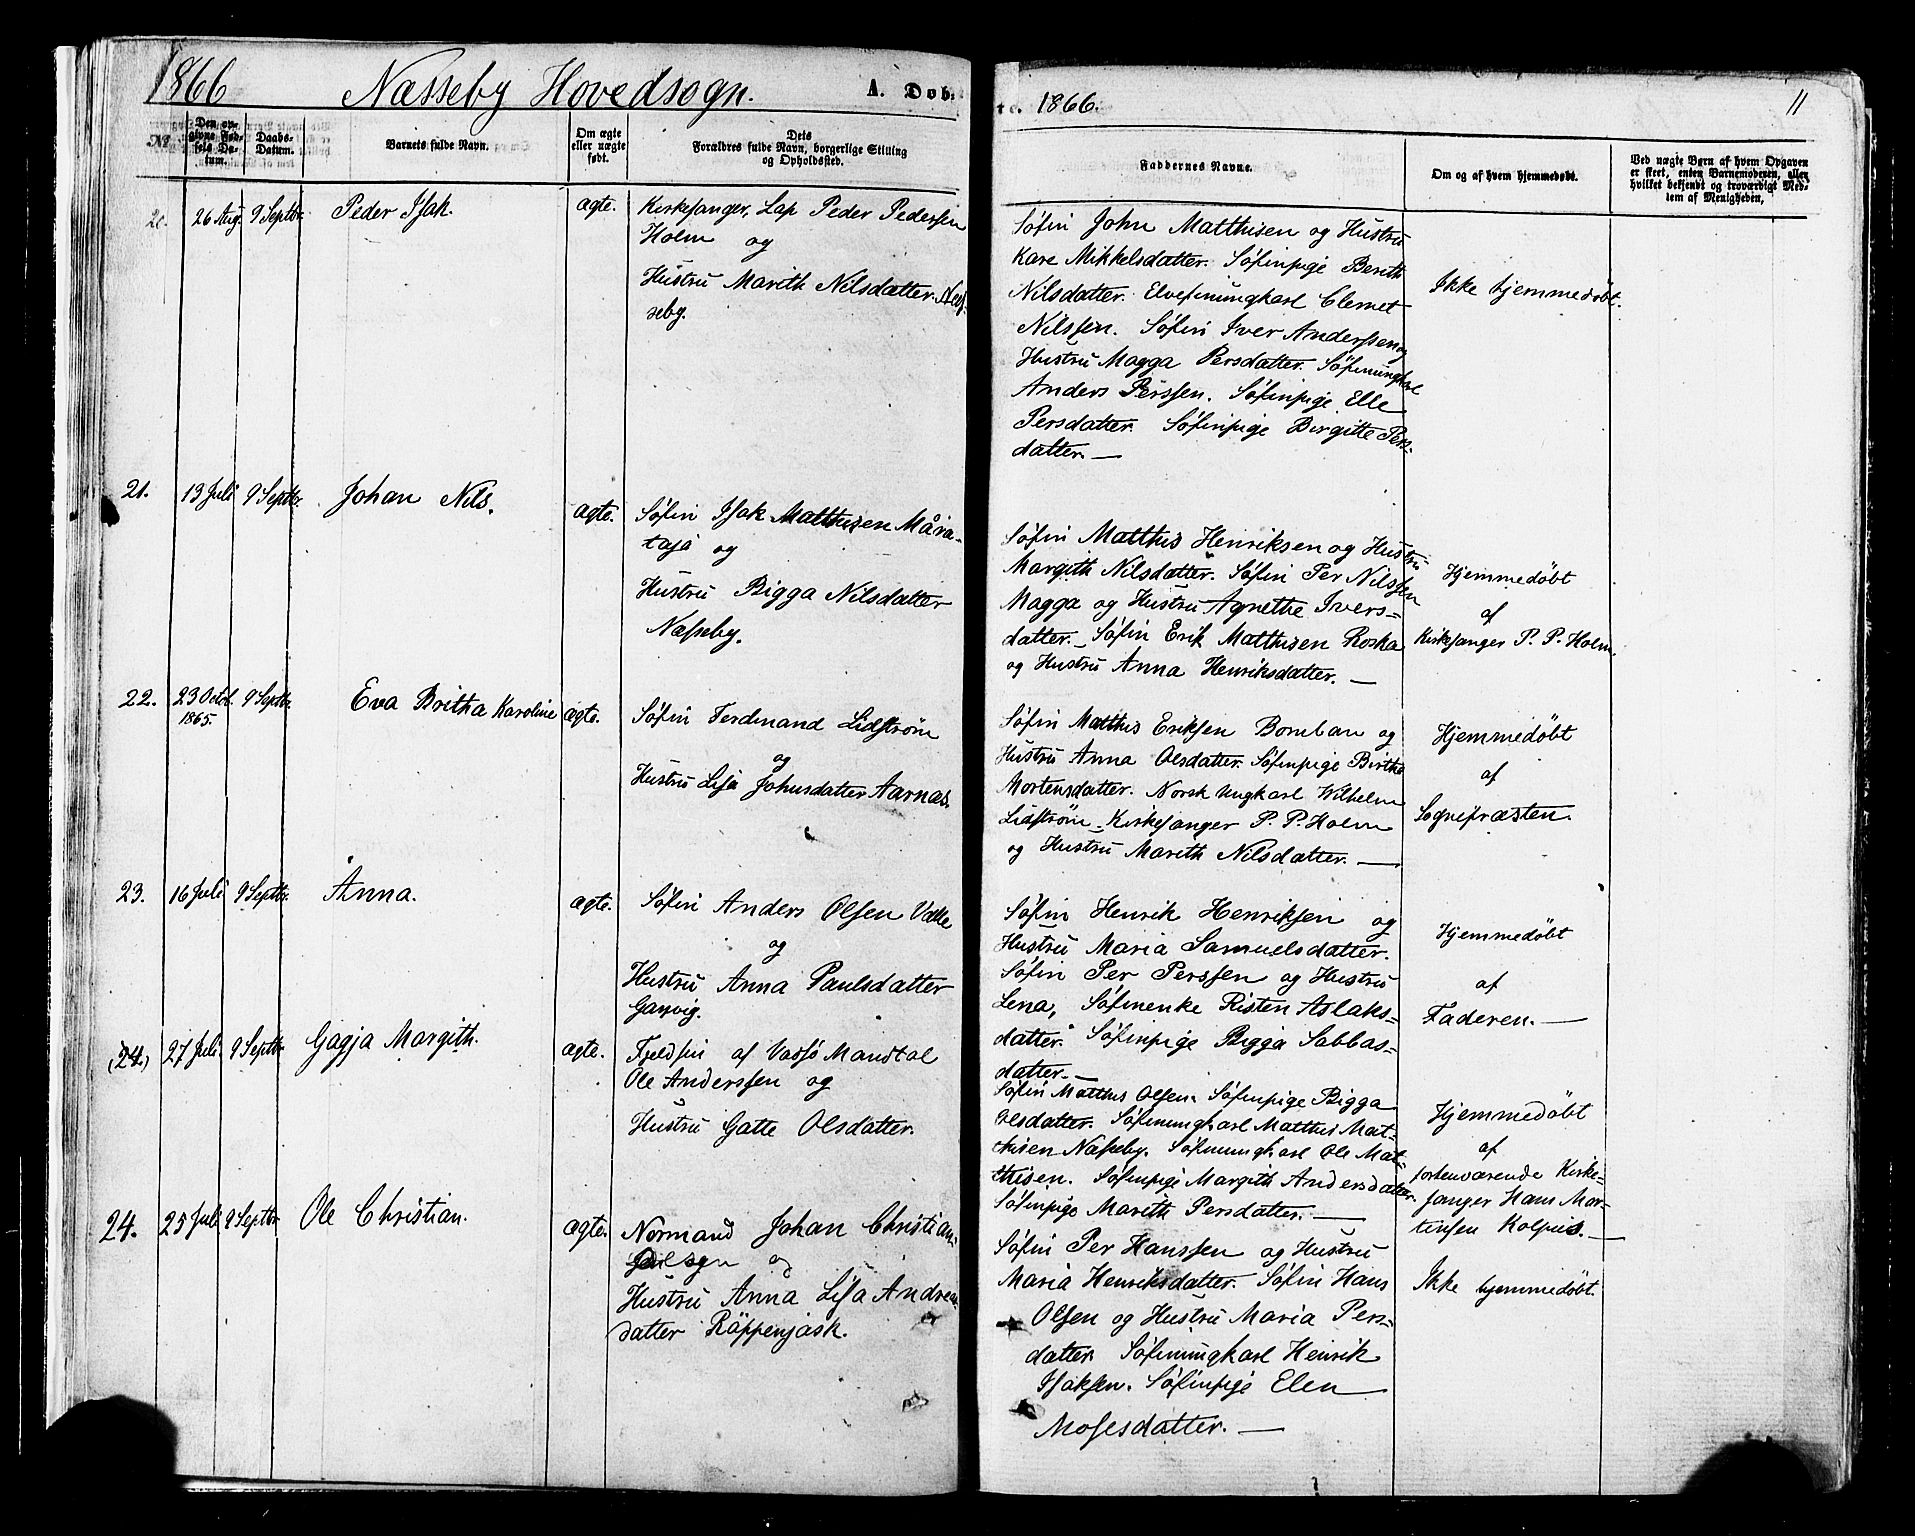 1866 Næsseby Hovedsogn. A. Døb-
te. 1866. 11
No.
Den op-
givne Fød-
sels Da-
tum.
Daabs-
Datum.
Barnets fulde Navn.
Om ægte
eller uægte
født.
Dets
Forældres fulde Navn, borgerlige Stilling
og Opholdssted.
Faddernes Navne.
Om og af hvem hjemmedøbt.
Ved uægte Børn af hvem Opgaven
er skeet, enten Barnemoderen, eller
hvilket bekjendt og troværdigt Med-
lem af Menigheden,
20. 26 Aug. 9 Septbr. Peder Isak. ægte.
Kirkesanger, Lap Peder Pedersen
Holm og
Hustru Marith Nilsdatter Næs-
seby.
Søfin John Matthisen og Hustru
Kare Mikkelsdatter. Søfinpige Berith
Nilsdatter. Elvefinungkarl Clemet
Nilssen. Søfin Iver Anderssen og
Hustru Magga Persdatter. Søfinungkarl
Anders Perssen. Søfinpige Elle
Persdatter. Søfinpige Birgitte Pers-
datter. —
Ikke hjemmedøbt.
21. 13 Juli 9 Septbr. Johan Nils. ægte.
Søfin Isak Matthisen Måra-
taja og
Hustru Bigga Nilsdatter
Næsseby.
Søfin Matthis Henriksen og Hustru
Margith Nilsdatter. Søfin Per Nilssen
Magga og Hustru Agnethe Ivers-
datter. Søfin Erik Matthisen Roska
og Hustru Anna Henriksdatter. —
Hjemmedøbt
af
Kirkesanger P. P. Holm.
22. 23 Octob.
1865. 9 Septbr. Eva Britha Karoline ægte.
Søfin Ferdinand Lidstrøm
og
Hustru Lisa Johnsdatter Aarnæs.
Søfin Matthis Eriksen Bomban og
Hustru Anna Olsdatter. Søfinpige Birthe
Mortensdatter. Norsk Ungkarl Wilhelm
Lidström. Kirkesanger P. P. Holm
og Hustru Marith Nilsdatter. —
Hjemmedøbt
af
Sognepræsten.
23. 16 Juli 9 Septbr. Anna. ægte.
Søfin Anders Olsen
og
Hustru Anna Paulsdatter
Søfin Henrik Henriksen og
Hustru Maria Samuelsdatter.
Søfin Per Perssen og Hustru
Lena, Søfinenke Risten Aslaks-
datter. Søfinpige Bigga Sabbas-
datter. —
Hjemmedøbt
af
Faderen. —
(24.) 27 Juli 9 Septbr. Gagja Margith. ægte.
Fjeldfin af Vadsø Mandtal
Ole Anderssen og
Hustru Gatte Olsdatter.
Søfin Matthis Olsen. Søfinpige Bigga
Olsdatter. Søfinungkarl Matthis Mat-
thisen Næsseby. Søfinungkarl Ole Mat-
thisen. Søfinpige Margith Andersdatter.
Søfinpige Marith Persdatter. —
Hjemmedøbt
af
forhenværende Kirke-
sanger Hans Mor-
tensen Kolpus. —
24. 25 Juli 9 Septbr. Ole Christian. ægte.
Normand Johan Christian
og
Hustru Anna Lisa Andreas-
datter Räppenjask.
Søfin Per Hanssen og Hustru
Maria Henriksdatter. Søfin Hans
Olsen og Hustru Maria Pers-
datter. Søfinungkarl Henrik
Isaksen. Søfinpige Elen
Mosesdatter. —
Ikke hjemmedøbt.